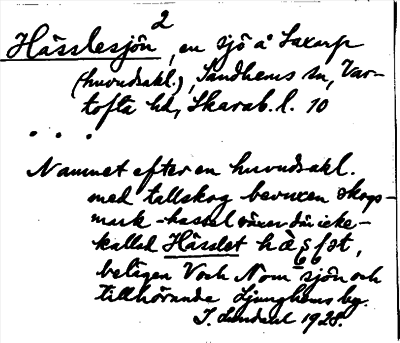 Hässlesjön 2, en sjö å Saxarp
(huvudsakl.), Sandhems sn, Var-
tofta hd, Skarab. l. 10
. . .
Namnet efter en huvudsakl.
med tallskog bevuxen skogs-
mark - hassel växer där icke -
kallad Hässlet
belägen V och N om sjön och
tillhörande Ljunghems by.
I. Lundahl 1928.